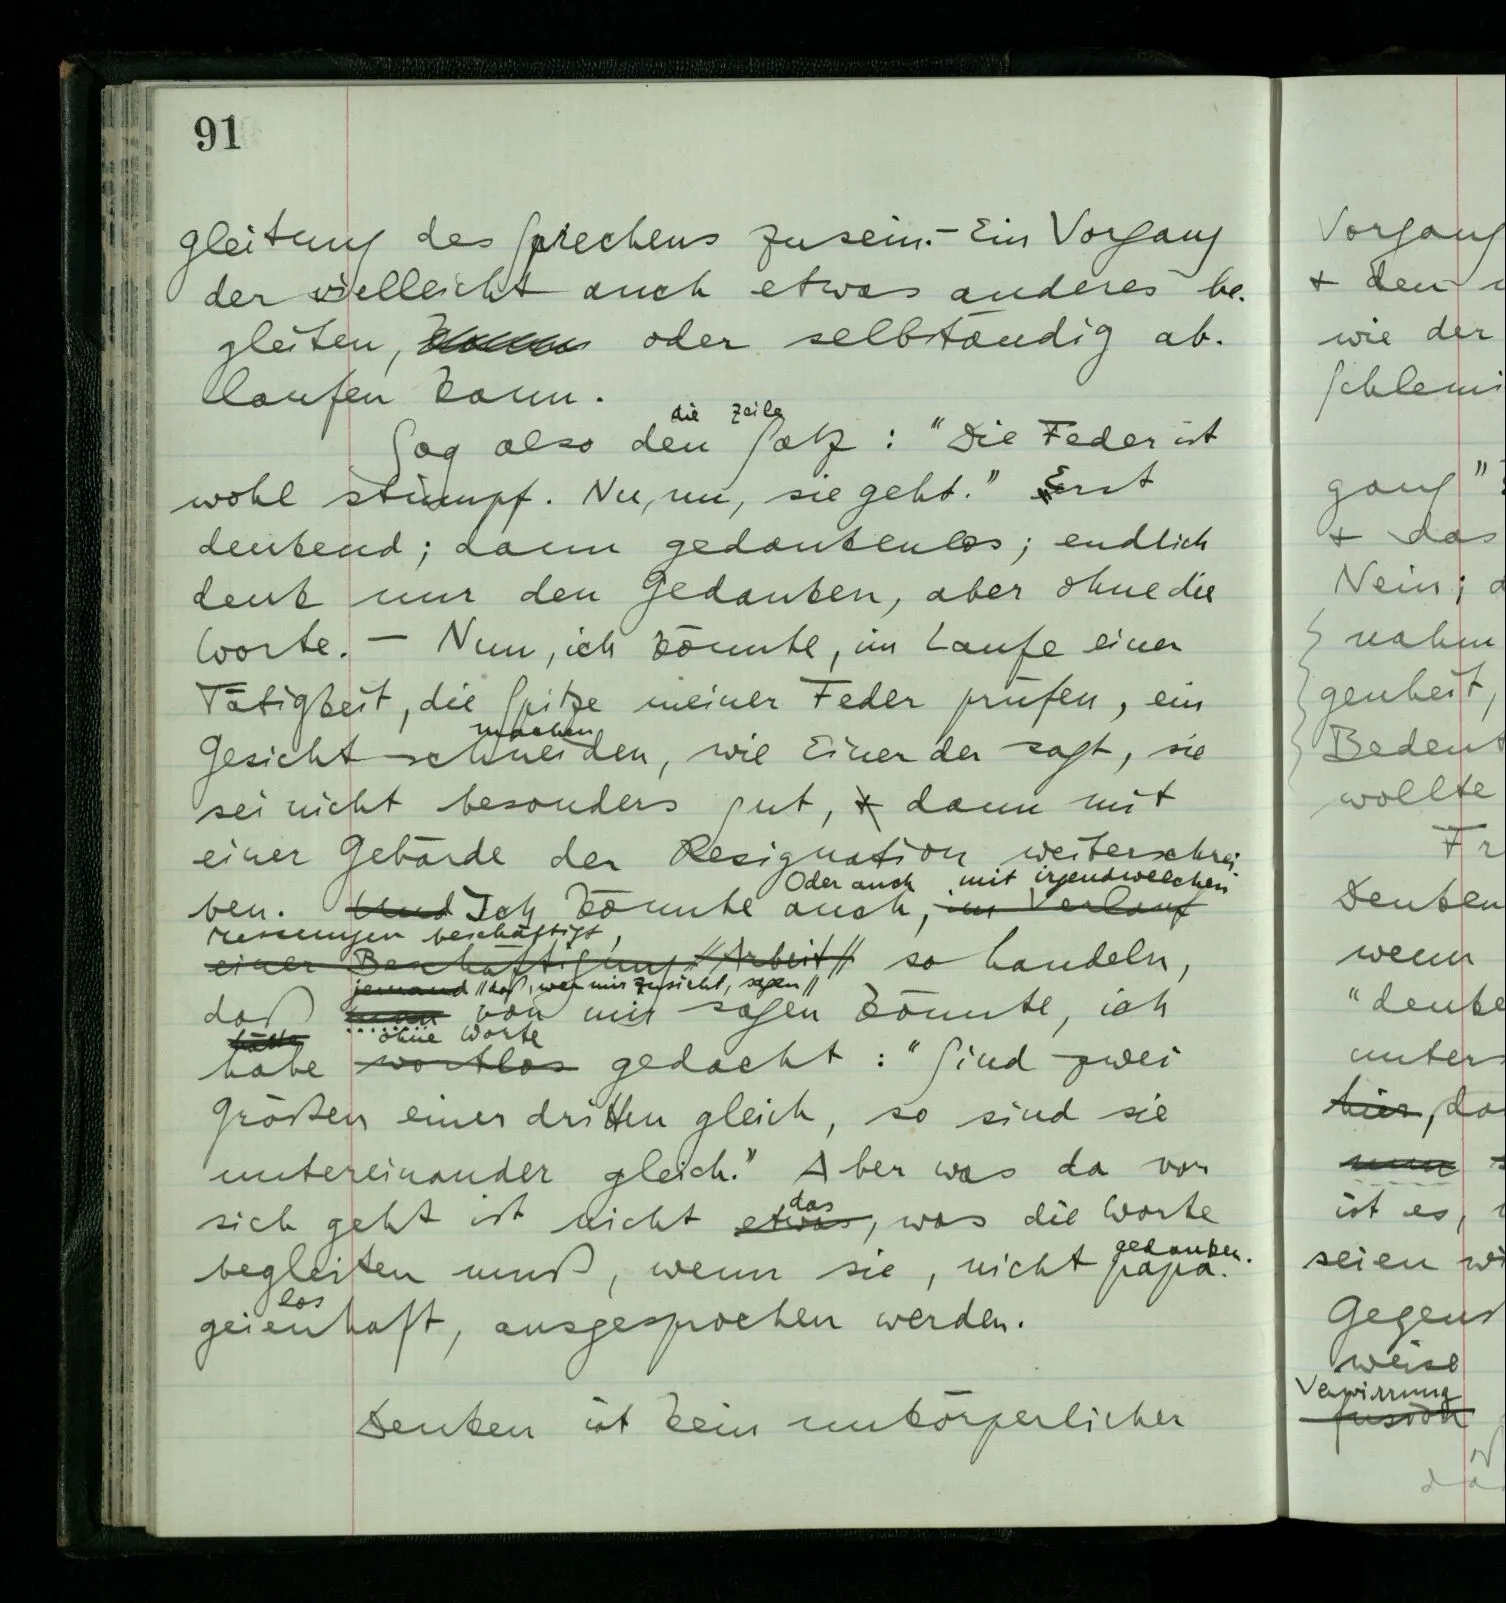 91
gleitung des Sprechens zu sein. – Ein Vorgang
der vielleicht auch etwas anderes be-
gleiten, oder selbständig ab-
laufen kann.
die Zeile
Sag also den Satz: "Die Feder ist
wohl stumpf. Nu, nu, sie geht." Erst
denkend; dann gedankenlos; endlich
denk nur den Gedanken, aber ohne die
Worte. – Nun, ich könnte, im Laufe einer
Tätigkeit, die Spitze meiner Feder prüfen, ein
machen
Gesicht schneiden, wie Einer der sagt, sie
sei nicht besonders gut, & dann mit
einer Gebärde der Resignation weiterschrei-
Oder auch mit irgendwelchen
ben. Und Ich könnte auch, im Verlauf
Messungen beschäftigt,
einer Beschäftigung //Arbeit// so handeln,
jemand //daß, wer mir zusieht, sagen//
daß man von mir sagen könnte, ich
hätte ohne Worte
habe wortlos gedacht: "Sind zwei
Größen einer dritten gleich, so sind sie
untereinander gleich." Aber was da vor
das
sich geht ist nicht etwas, was die Worte
gedanken-
begleiten muß, wenn sie, nicht papa-
los
geienhaft, ausgesprochen werden.
Denken ist kein unkörperlicher
Vorgang
& den
wie der
Schlemi
gang"
& das
Nein;
nahm
genheit,
Bedeut
wollte
Fr
Denken
wenn
"denke
unters
hier, da
nun
ist es,
seien wi
Gegens
weise
Verwirrung
fusion